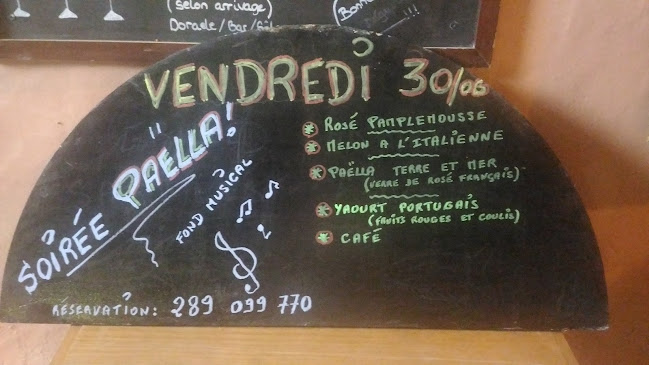 (selon arrivage)
Dorade/Bar/
VENDREDI 30/06
SOIRÉE PAËLLA!
FOND MUSICAL
ROSÉ PAMPLEMOUSSE
MELON A L'ITALIENNE
PAËLLA TERRE ET MER
(VERRE DE ROSÉ FRANÇAIS)
YAOURT PORTUGAIS
(FRUITS ROUGES ET COULIS)
CAFÉ
RÉSERVATION: 289 099 770